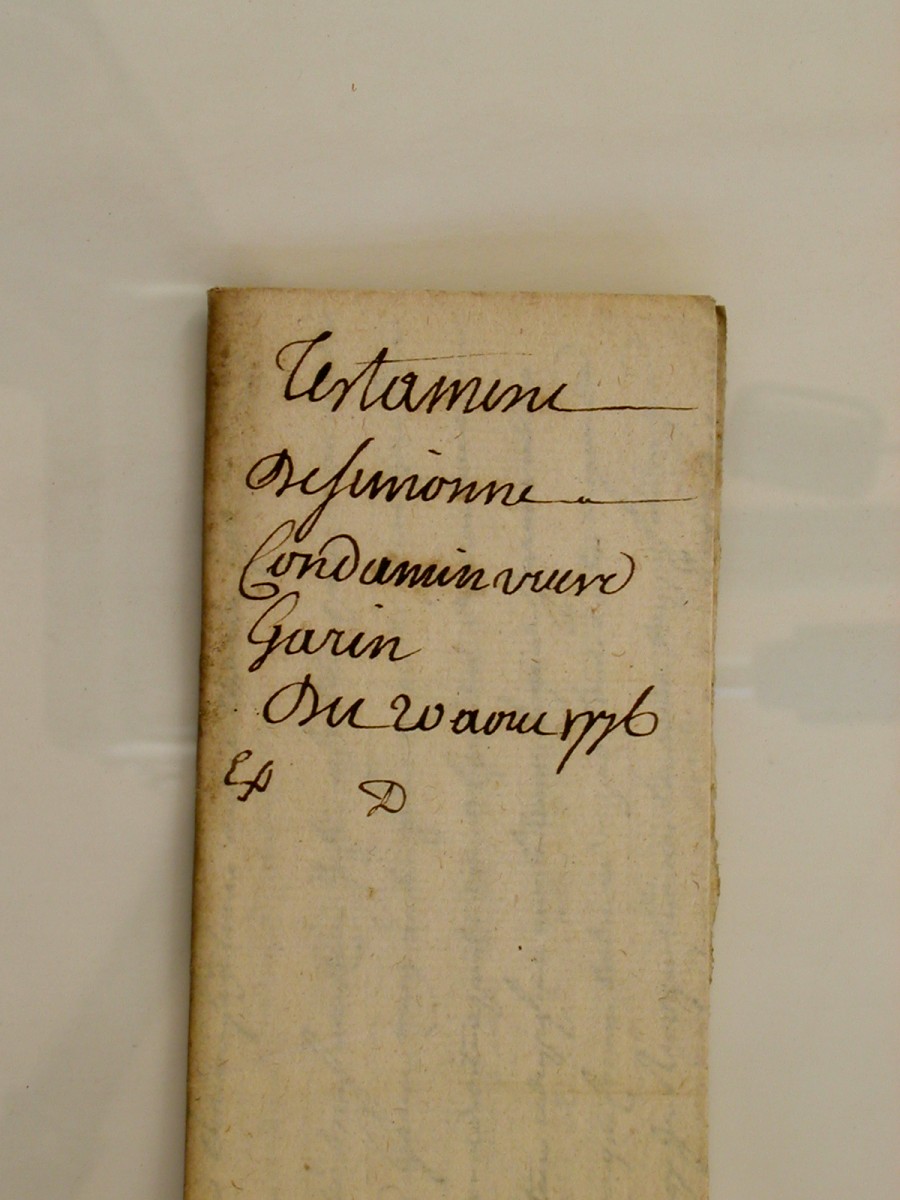 Testament
De simonne
Condamin veuve
Garin
Du 20 aout 1776
Exp D